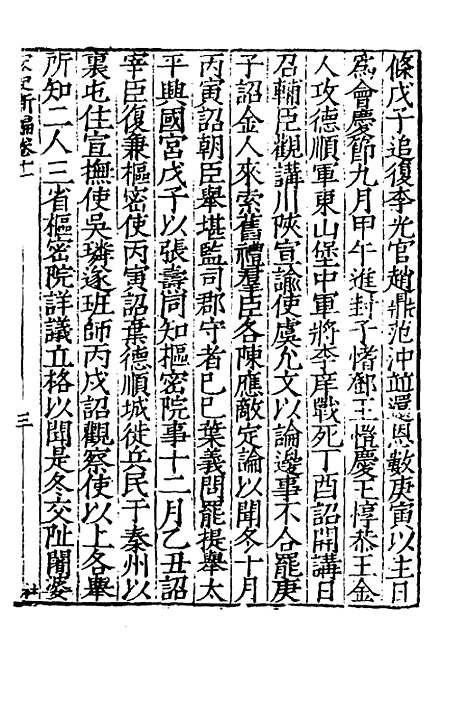 條戊子追復李光官趙鼎范沖並還恩數庚寅以生日
爲會慶節九月甲午進封子愭鄧王愷慶王惇恭王金
人攻德順軍東山堡中軍將李庠戰死丁酉詔開講日
召輔臣觀講川陝宣諭使虞允文以論邊事不合罷庚
子詔金人來索舊禮羣臣各陳應敵定論以聞冬十月
丙寅詔朝臣舉堪監司郡守者己巳葉義問罷提舉太
平興國宮戊子以張壽同知樞密院事十二月乙丑詔
宰臣復兼樞密使丙寅詔棄德順城徙兵民于秦州以
裏屯住宣撫使吳璘遂班師丙戌詔觀察使以上各舉
所知二人三省樞密院詳議立格以聞是冬交阯闍婆
宋史新編卷十一
三